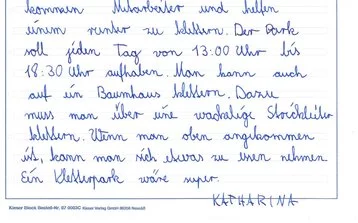 kommen Mitarbeiter und helfen
einem runter zu klettern. Der Park
soll jeden Tag von 13:00 Uhr bis
18:30 Uhr aufhaben. Man kann auch
auf ein Baumhaus klettern. Dazu
muss man über eine wackelige Strickleiter
klettern. Wenn man oben angekommen
ist, kann man sich etwas zu essen nehmen
Ein Kletterpark wäre super.
KATHARINA